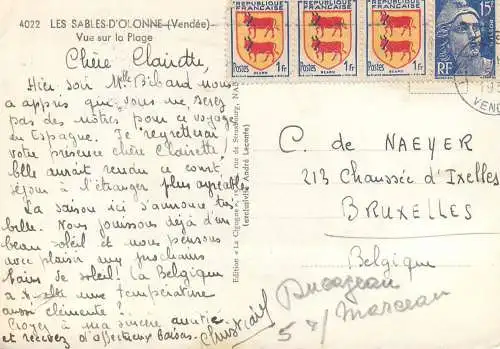 4022 LES SABLES-D'OLONNE (Vendée)
Vue sur la Plage
Chère Clairette,
Hier soir Mlle Bibard nous
a appris que vous ne serez
pas des nôtres pour ce voyage
en Espagne. Je regrettrai
votre présence chère Clairette,
elle aurait rendu ce court
séjour à l'étranger plus agréable.
La saison ici s'annonce très
belle. Nous jouissons déjà d'un
beau soleil et nous pensons
avec plaisir aux prochains
bains de soleil! La Belgique
a une température
aussi clémente!
Croyez à ma sincère amitié
et recevez d'affectueux baisers.
Christiane
Edition « La Cigogne », rue de Strasbourg, NAN
(exclusivité André Leconte)
RÉPUBLIQUE FRANÇAISE
POSTES 1Fr
BÉARN
RÉPUBLIQUE FRANÇAISE
POSTES 1Fr
BÉARN
RÉPUBLIQUE FRANÇAISE
POSTES 1Fr
BÉARN
15F
POSTES
RF
VEN
C. de NAEYER
213 Chaussée d'Ixelles
BRUXELLES
Belgique
Ducazeau
5 r/ Marceau